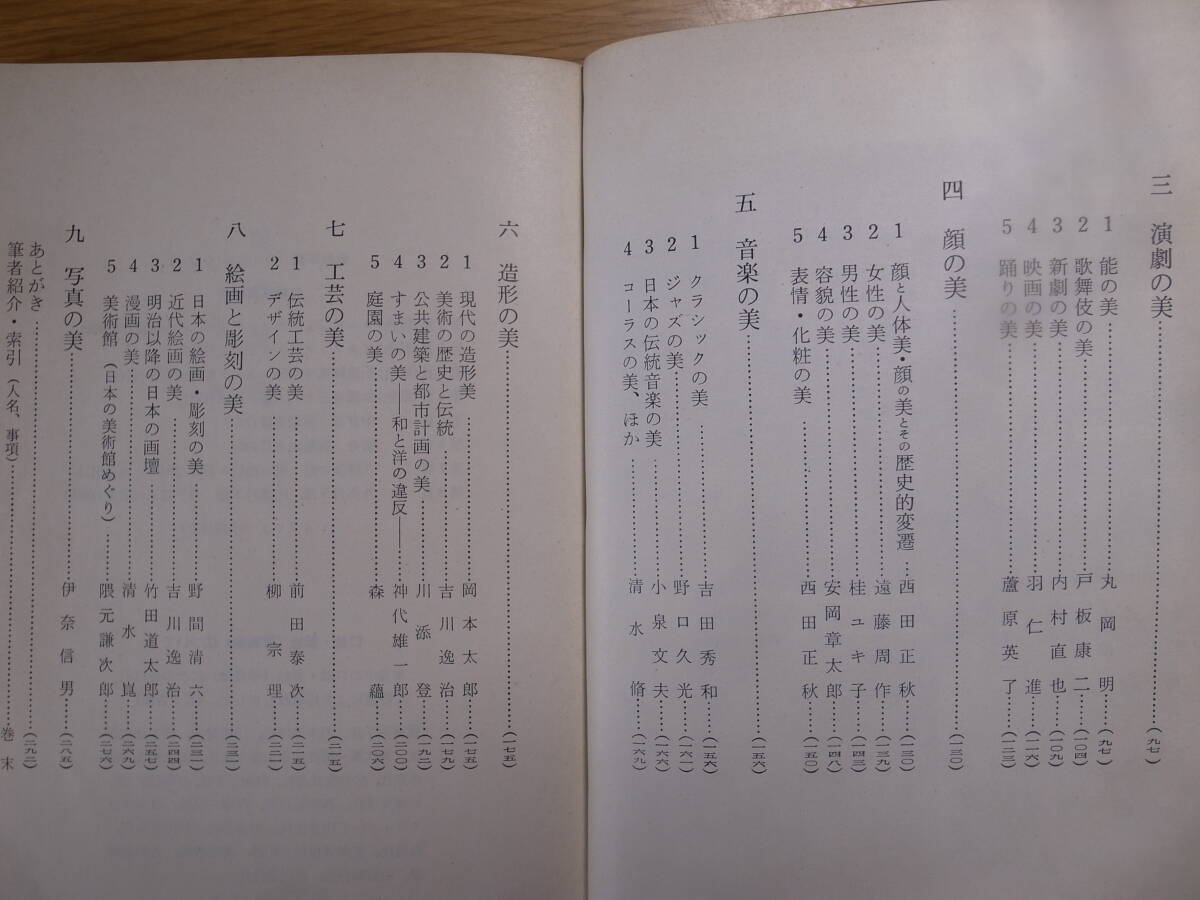 三　演劇の美……………(九七)
1　能の美……………丸岡明……(九七)
2　歌舞伎の美……………戸板康二……(一〇四)
3　新劇の美……………内村直也……(一〇九)
4　映画の美……………羽仁進……(一一六)
5　踊りの美……………蘆原英了……(一二三)
四　顔の美……………(一三〇)
1　顔と人体美・顔の美とその歴史的変遷……西田正秋……(一三〇)
2　女性の美……………遠藤周作……(一三九)
3　男性の美……………桂ユキ子……(一四三)
4　容貌の美……………安岡章太郎……(一四八)
5　表情・化粧の美……………西田正秋……(一五〇)
五　音楽の美……………(一五六)
1　クラシックの美……………吉田秀和……(一五六)
2　ジャズの美……………野口久光……(一六一)
3　日本の伝統音楽の美……………小泉文夫……(一六六)
4　コーラスの美、ほか……………清水脩……(一六九)
六　造形の美……………(一七五)
1　現代の造形美……………岡本太郎……(一七五)
2　美術の歴史と伝統……………吉川逸治……(一七九)
3　公共建築と都市計画の美……………川添登……(一九二)
4　すまいの美――和と洋の違反――……神代雄一郎……(二〇〇)
5　庭園の美……………森蘊……(二〇六)
七　工芸の美……………(二一五)
1　伝統工芸の美……………前田泰次……(二一五)
2　デザインの美……………柳宗理……(二二一)
八　絵画と彫刻の美……………(二三一)
1　日本の絵画・彫刻の美……………野間清六……(二三一)
2　近代絵画の美……………吉川逸治……(二四四)
3　明治以降の日本の画壇……………竹田道太郎……(二五七)
4　漫画の美……………清水崑……(二六九)
5　美術館（日本の美術館めぐり）……隈元謙次郎……(二七六)
九　写真の美……………伊奈信男……(二八五)
あとがき……………(二九二)
筆者紹介・索引（人名、事項）……………巻末